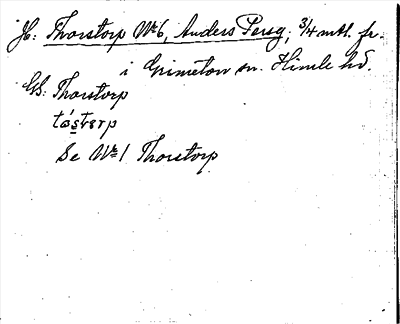 H: Thorstorp № 6, Anders Persg, 3/4 mtl. fr.
i Grimeton sn. Himle hd.
GS: Thorstorp
tåsterp
Se № 1 Thorstorp